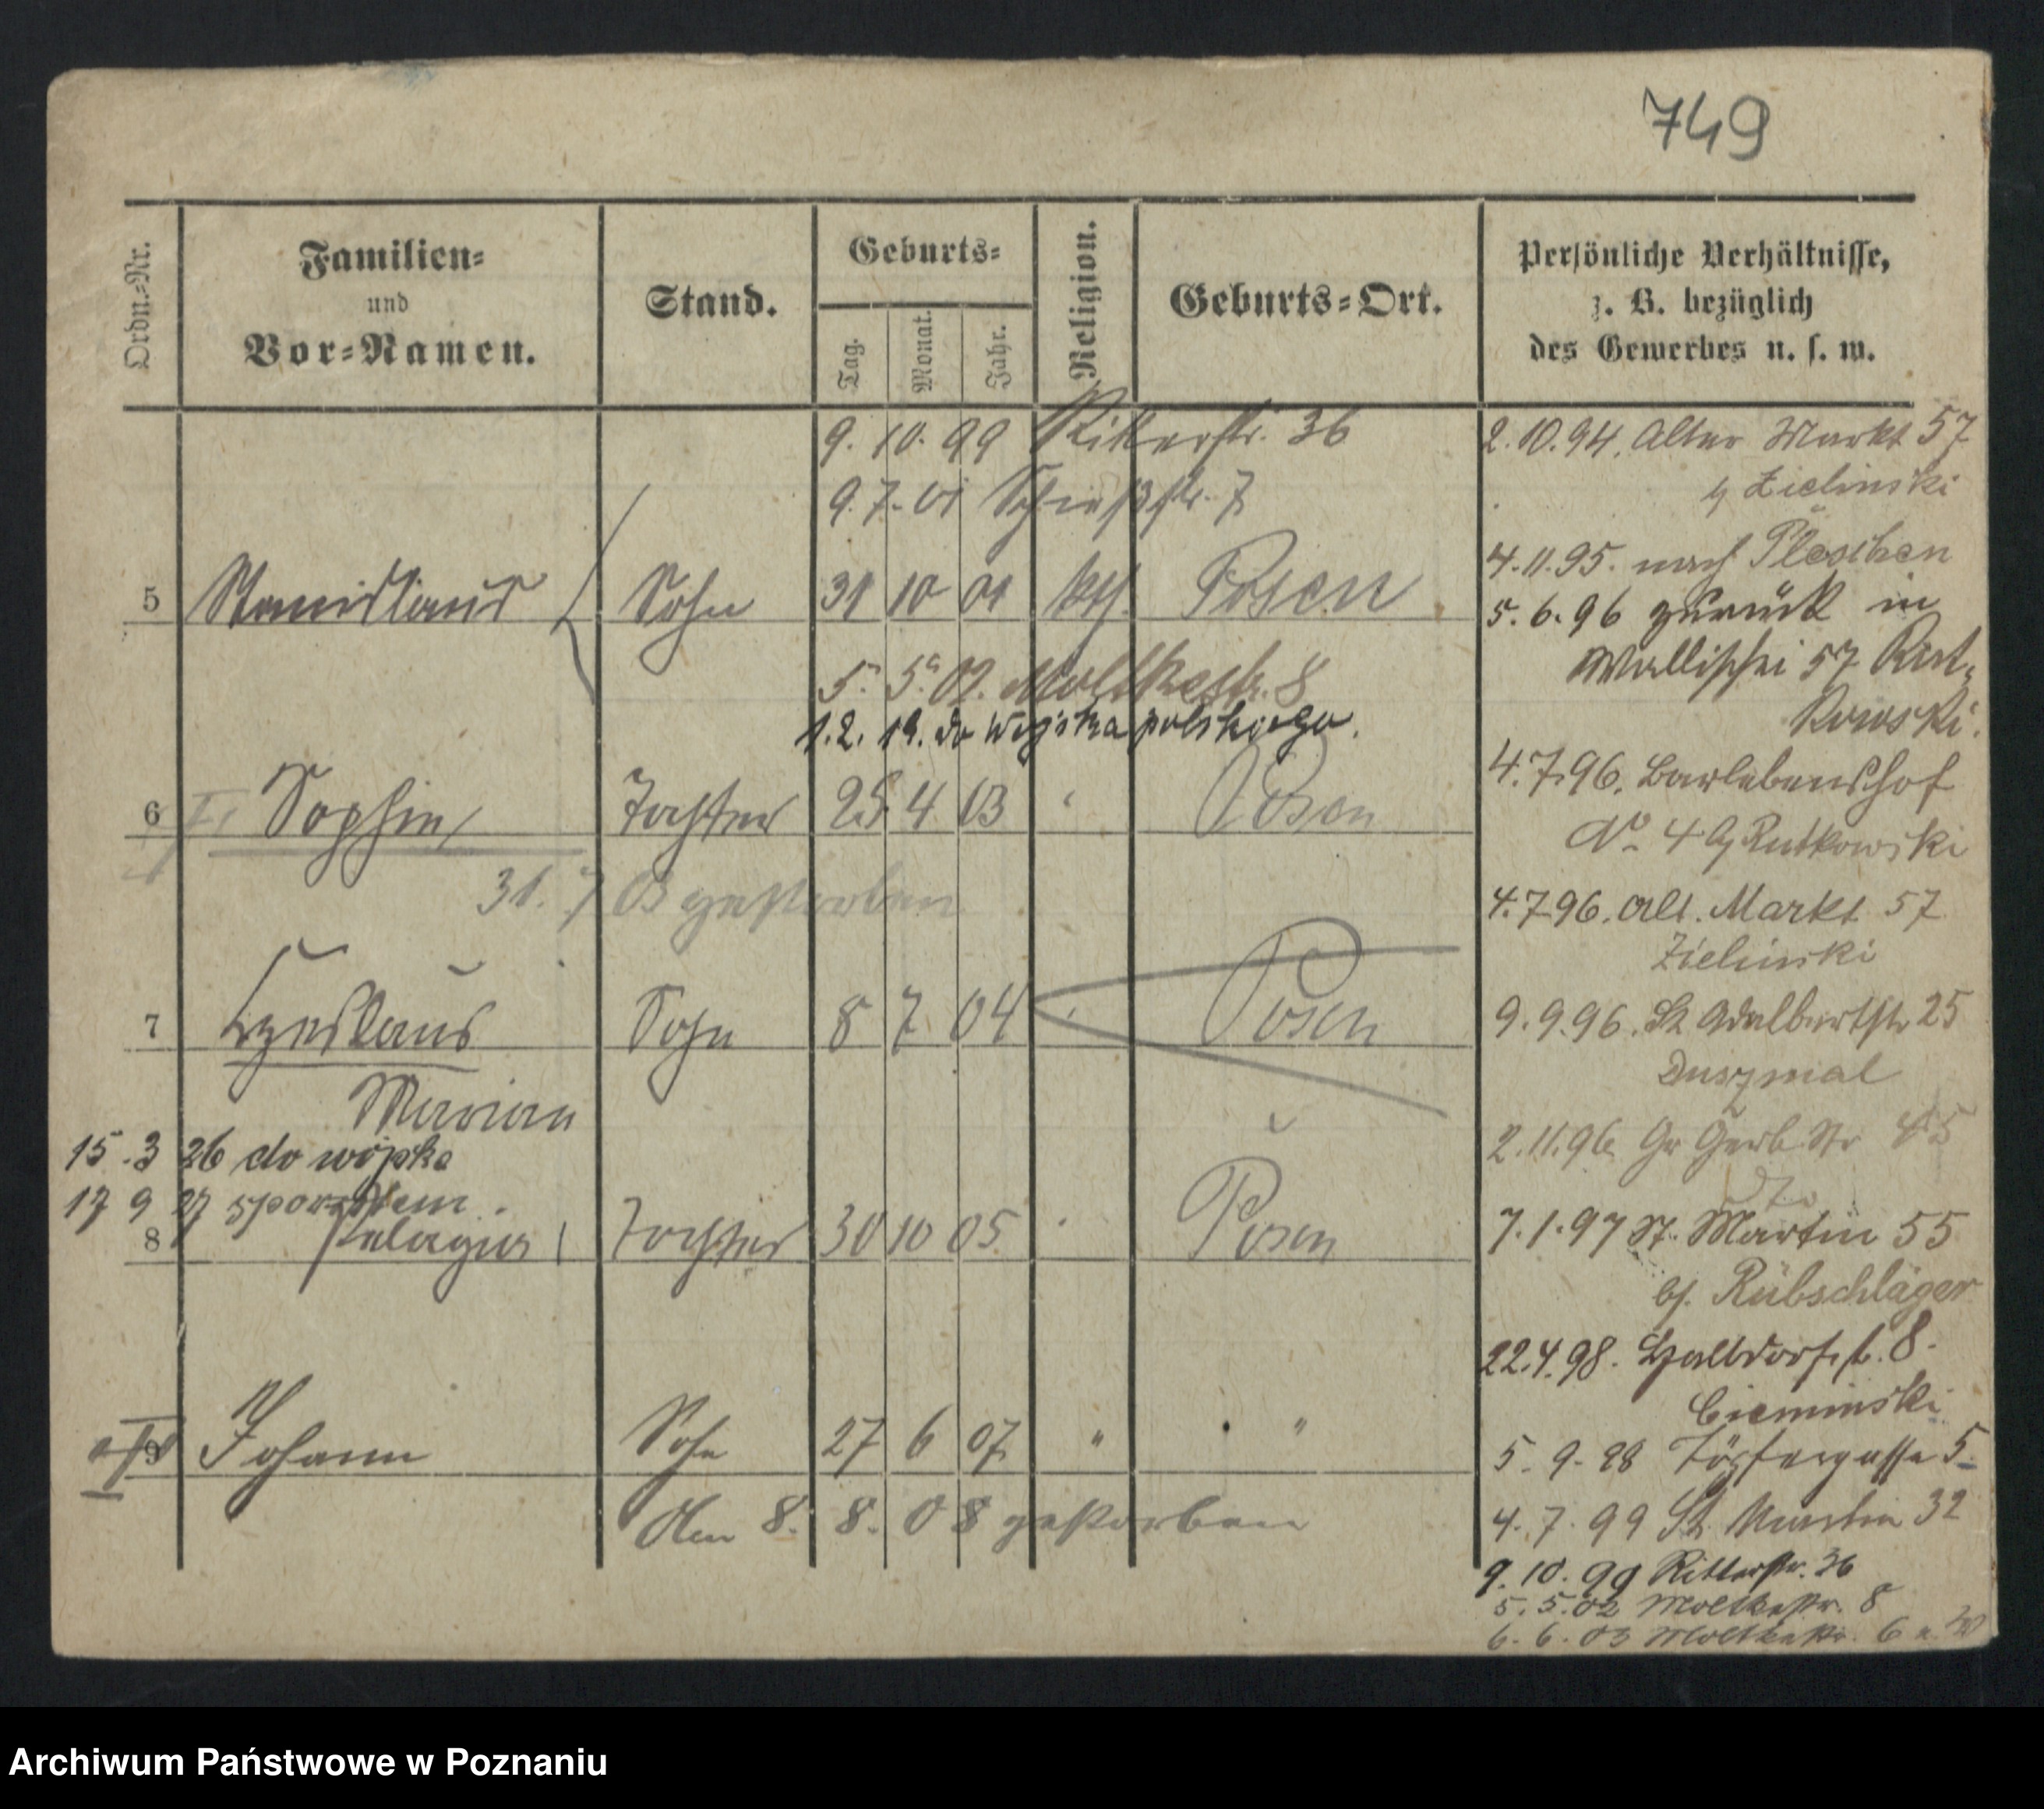 749
Ordn.-Nr.
Familien-
und
Vor-Namen.
Stand.
Geburts-
Tag.
Monat.
Jahr.
Religion.
Geburts-Ort.
Persönliche Verhältnisse,
z. B. bezüglich
des Gewerbes u. s. w.
9. 10. 99 Ritterstr. 36
9. 7. 01 Schießstr. 7
5 Stanislaus Sohn 31 10 01 kth. Posen
5. 5. 02. Moltkestr. 8
1. 2. 19. do wojska polskiego.
6 Sophie Tochter 25 4 03 Posen
31. 7 03 gestorben
7 Czeslaus Sohn 8 7 04 Posen
Marian
15 . 3 26 do wojska
17 9 27
8 Pelagia Tochter 30 10 05 Posen
9 Johann Sohn 27 6 07 " "
Am 8. 8. 08 gestorben
2. 10. 94. Alter Markt 57
Zielinski
4. 11. 95. nach Pleschen
5. 6. 96 zurück in
Wallischei 57 Rut-
kowski.
4. 7. 96. Barlebenshof
No 4 Rutkowski
4. 7 96. Alt. Markt 57
Zielinski
9. 9. 96. St Adalbertstr 25
Duszmal
2. 11. 96 Gr Gerb. Str 45
7. 1. 97 St. Martin 55
bj. Rübschläger
22. 4. 98. Halbdorfstr. 8.
Cieminski
5. 9. 98 Töpfergasse 5.
4. 7. 99 St Martin 32
9. 10. 99 Ritterstr. 36
5. 5. 02 Moltkestr. 8
6. 6. 03 Moltkestr. 6
Archiwum Państwowe w Poznaniu